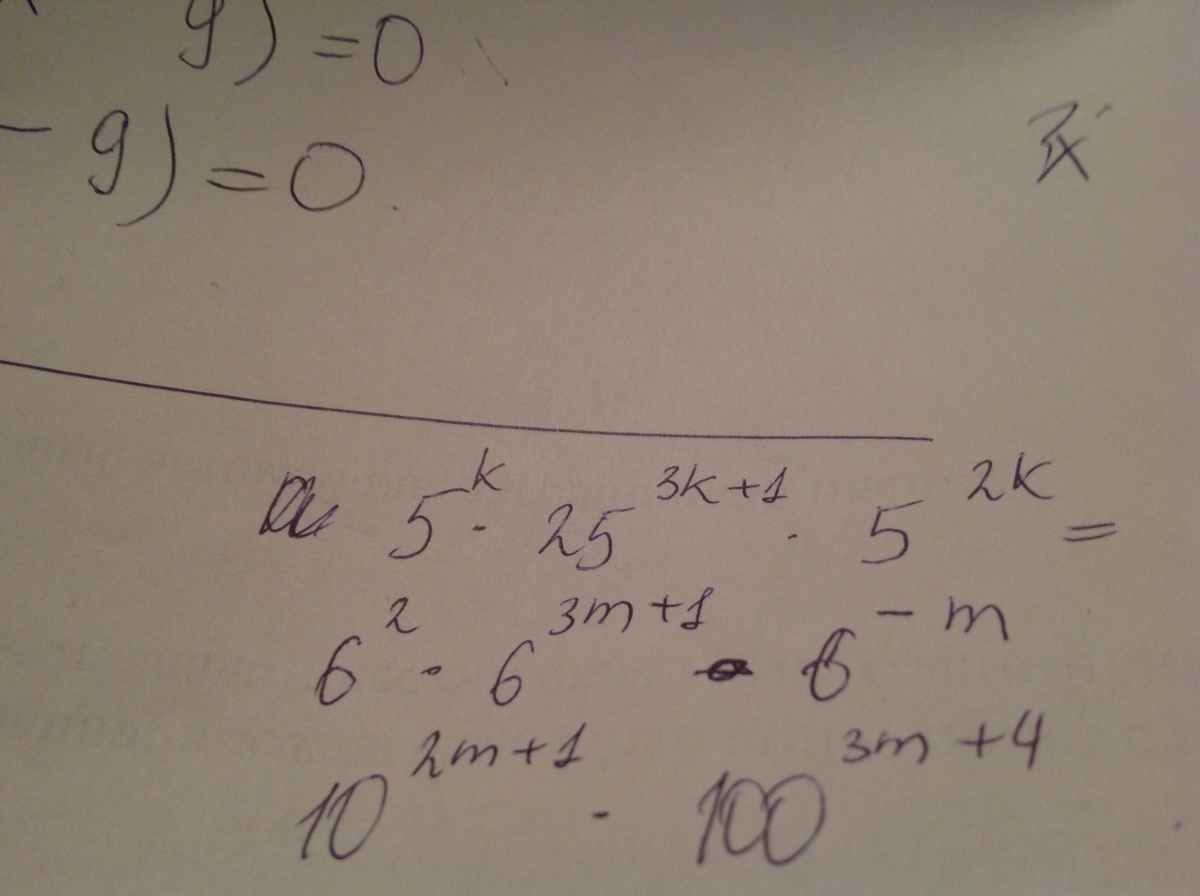 9) = 0
- 9) = 0.
5^k · 25^{3k+1} · 5^{2k} =
6^2 · 6^{3m+1} · 6^{-m}
10^{2m+1} · 100^{3m+4}